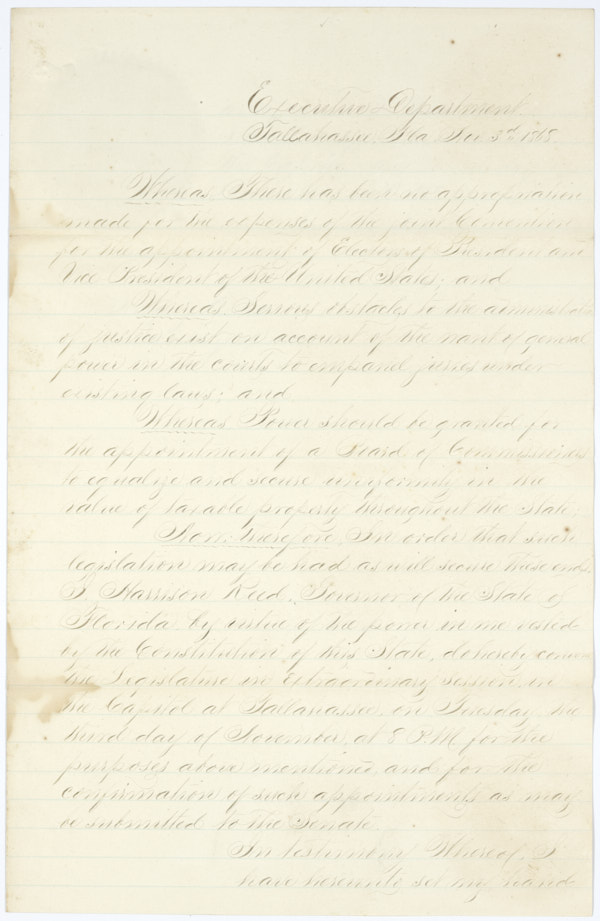 Executive Department
Tallahassee, Fla 3rd, 1868
Whereas, There has been no appropriation
made for the expenses of the joint Convention
for the appointment of Electors of President and
Vice President of the United States; and
Whereas, Serious obstacles to the administration
of justice exist on account of the want of general
power in the courts to empanel juries under
existing laws; and
Whereas Power should be granted for
the appointment of a Board of Commissioners
to equalize and secure uniformity in the
value of taxable property throughout the State;
Now, therefore, In order that such
legislation may be had as will secure these ends,
I Harrison Reed, Governor of the State of
Florida by virtue of the power in me vested
by the Constitution of this State, do hereby convene
the Legislature in Extraordinary session, in
the Capitol at Tallahassee, on Tuesday the
third day of November, at 8 P.M. for the
purposes above mentioned and for the
confirmation of such appointments as may
be submitted to the Senate.
In testimony Whereof, I
have hereunto set my hand